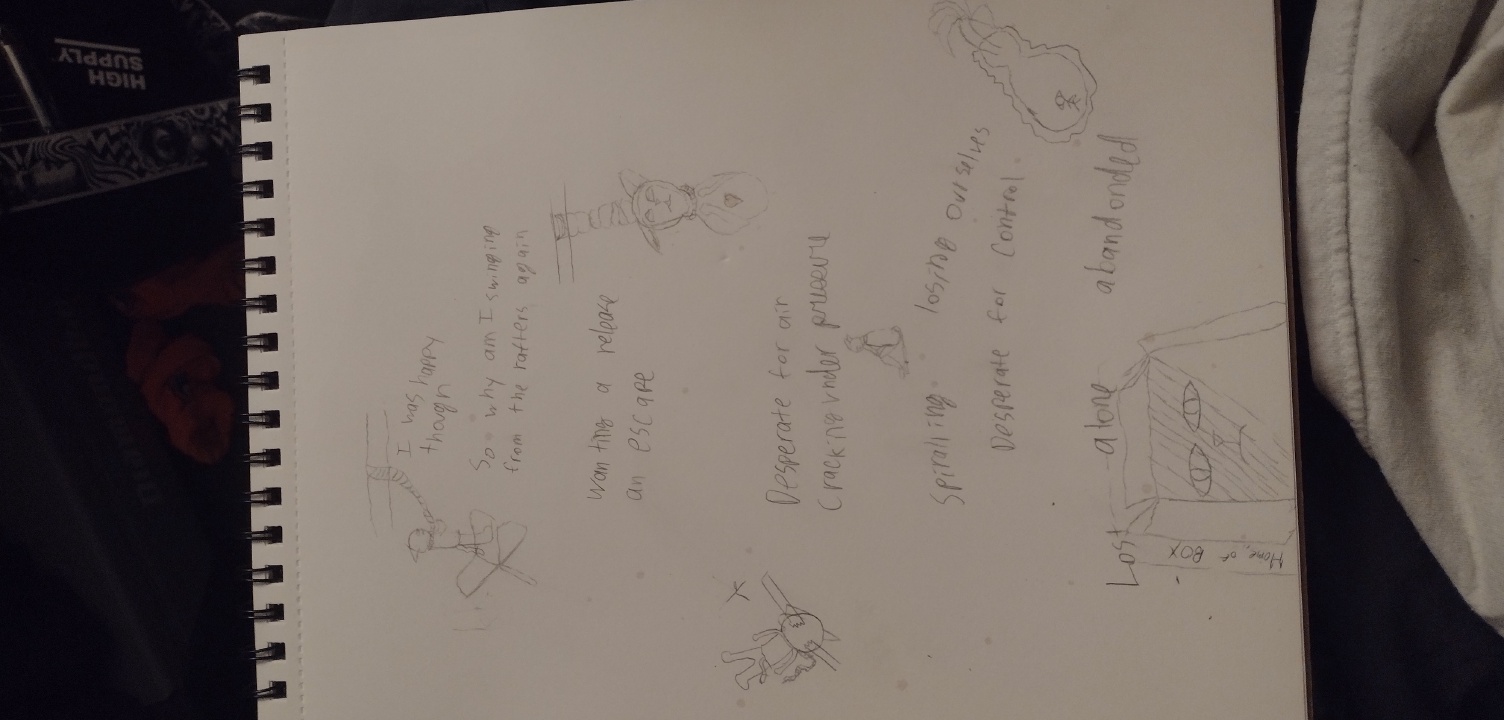 I was happy
though
So why am I swinging
from the rafters again
wanting a release
an escape
Desperate for air
Cracking under
Spiralling losing ourselves
Desperate for control
Lost alone abandonded
Home of BOX
HIGH
SUPPLY